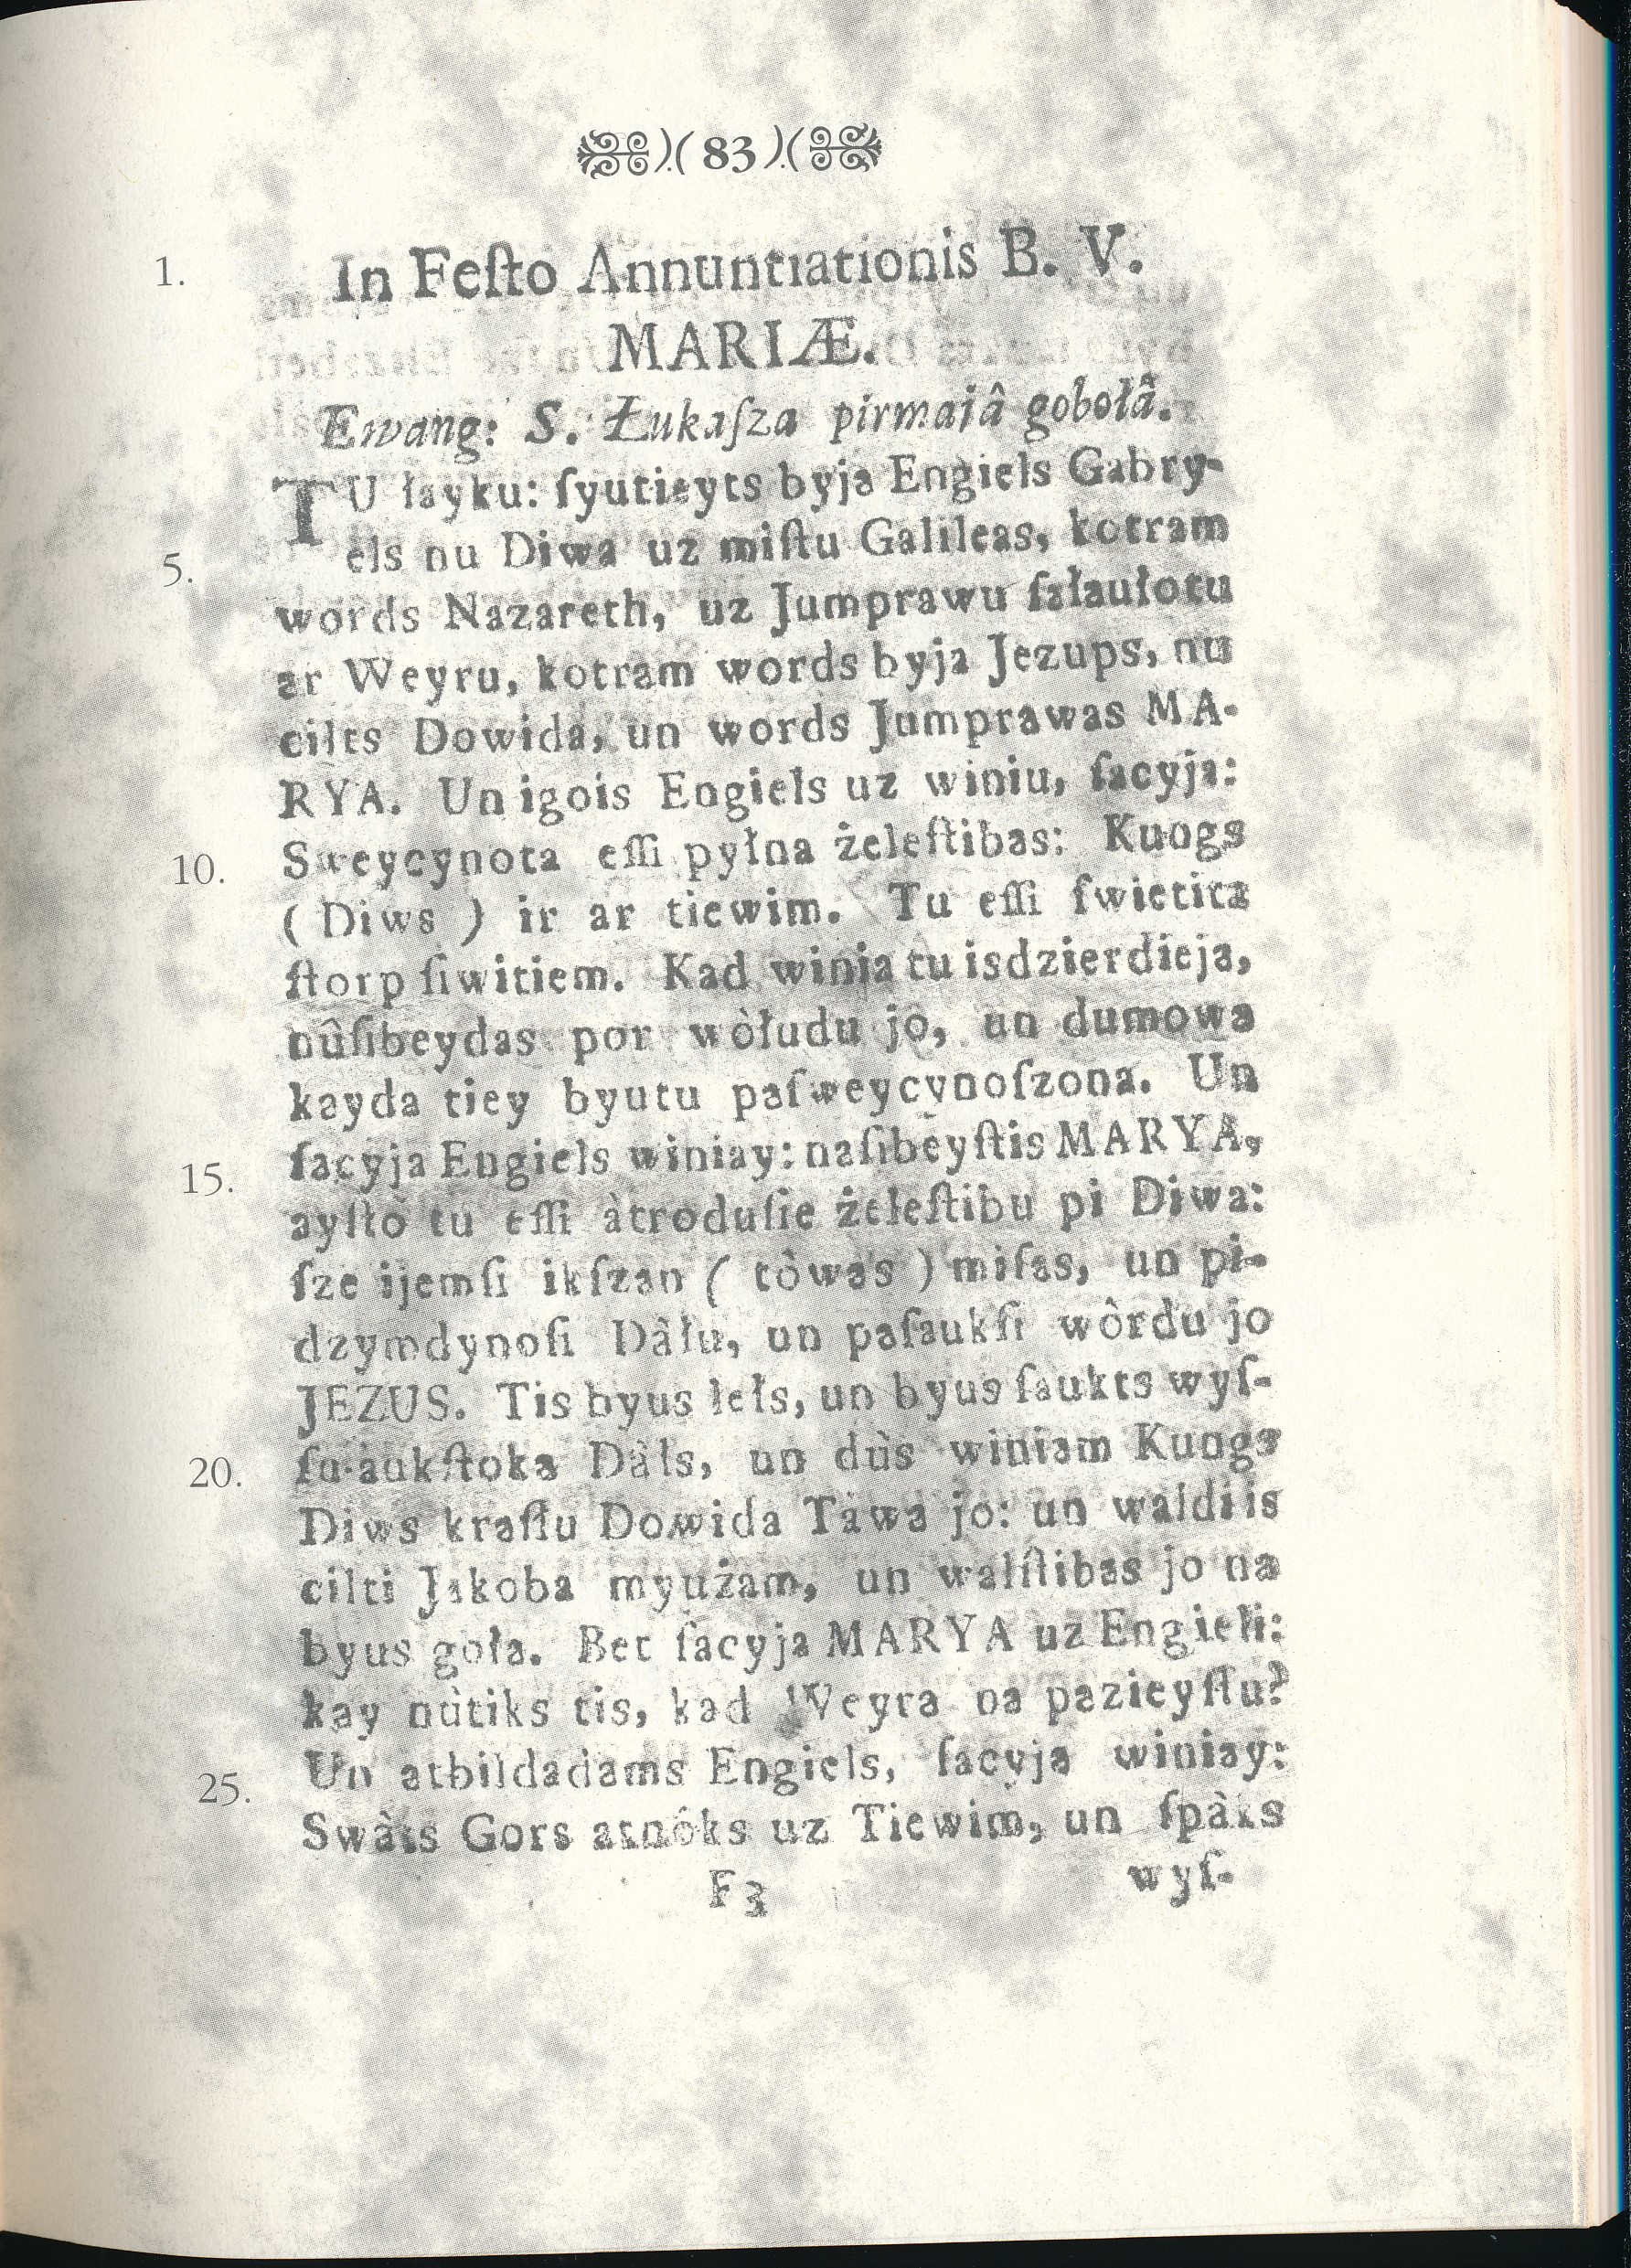 ).( 83 ).(
1. In Feſto Annuntiationis B. V.
MARIÆ.
Ewang: S. Łukaſza pirmaiâ gobołâ.
TU łayku: ſyutieyts byja Engiels Gabry-
5. els nu Diwa uz miſtu Galileas, kotram
words Nazareth, uz Jumprawu ſałaułotu
ar Weyru, kotram words byja Jezups, nu
cilts Dowida, un words Jumprawas MA-
RYA. Un igois Engiels uz winiu, ſacyja:
10. Sweycynota eſſi pyłna żeleſtibas: Kungs
( Diws ) ir ar tiewim. Tu eſſi ſwietita
ſtorp ſiwitiem. Kad winia tu isdzierdieja,
nûſibeydas por wòłudu jo, un dumowa
kayda tiey byutu paſweycynoſzona. Un
15. ſacyja Engiels winiay: naſibeyſtis MARYA,
ayſtò tu eſſi àtroduſie żeleſtibu pi Diwa:
ſze ijemſi ikſzan ( tòwas ) miſas, un pi-
dzymdynoſi Dàłu, un paſaukſi wôrdu jo
JEZUS. Tis byus lełs, un byus ſaukts wyſ-
20. ſu-aukſtoka Dàłs, un dùs winiam Kungs
Diws kraſłu Dowida Tàwa jo: un waldiis
cilti Jakoba myużam, un walſtibas jo na
byus goła. Bet ſacyja MARYA uz Engieli:
kay nùtiks tis, kad Weyra na pazieyſtu?
25. Un atbildadams Engiels, ſacyja winiay:
Swàts Gors atnóks uz Tiewim, un ſpàks
F3 wyſ-